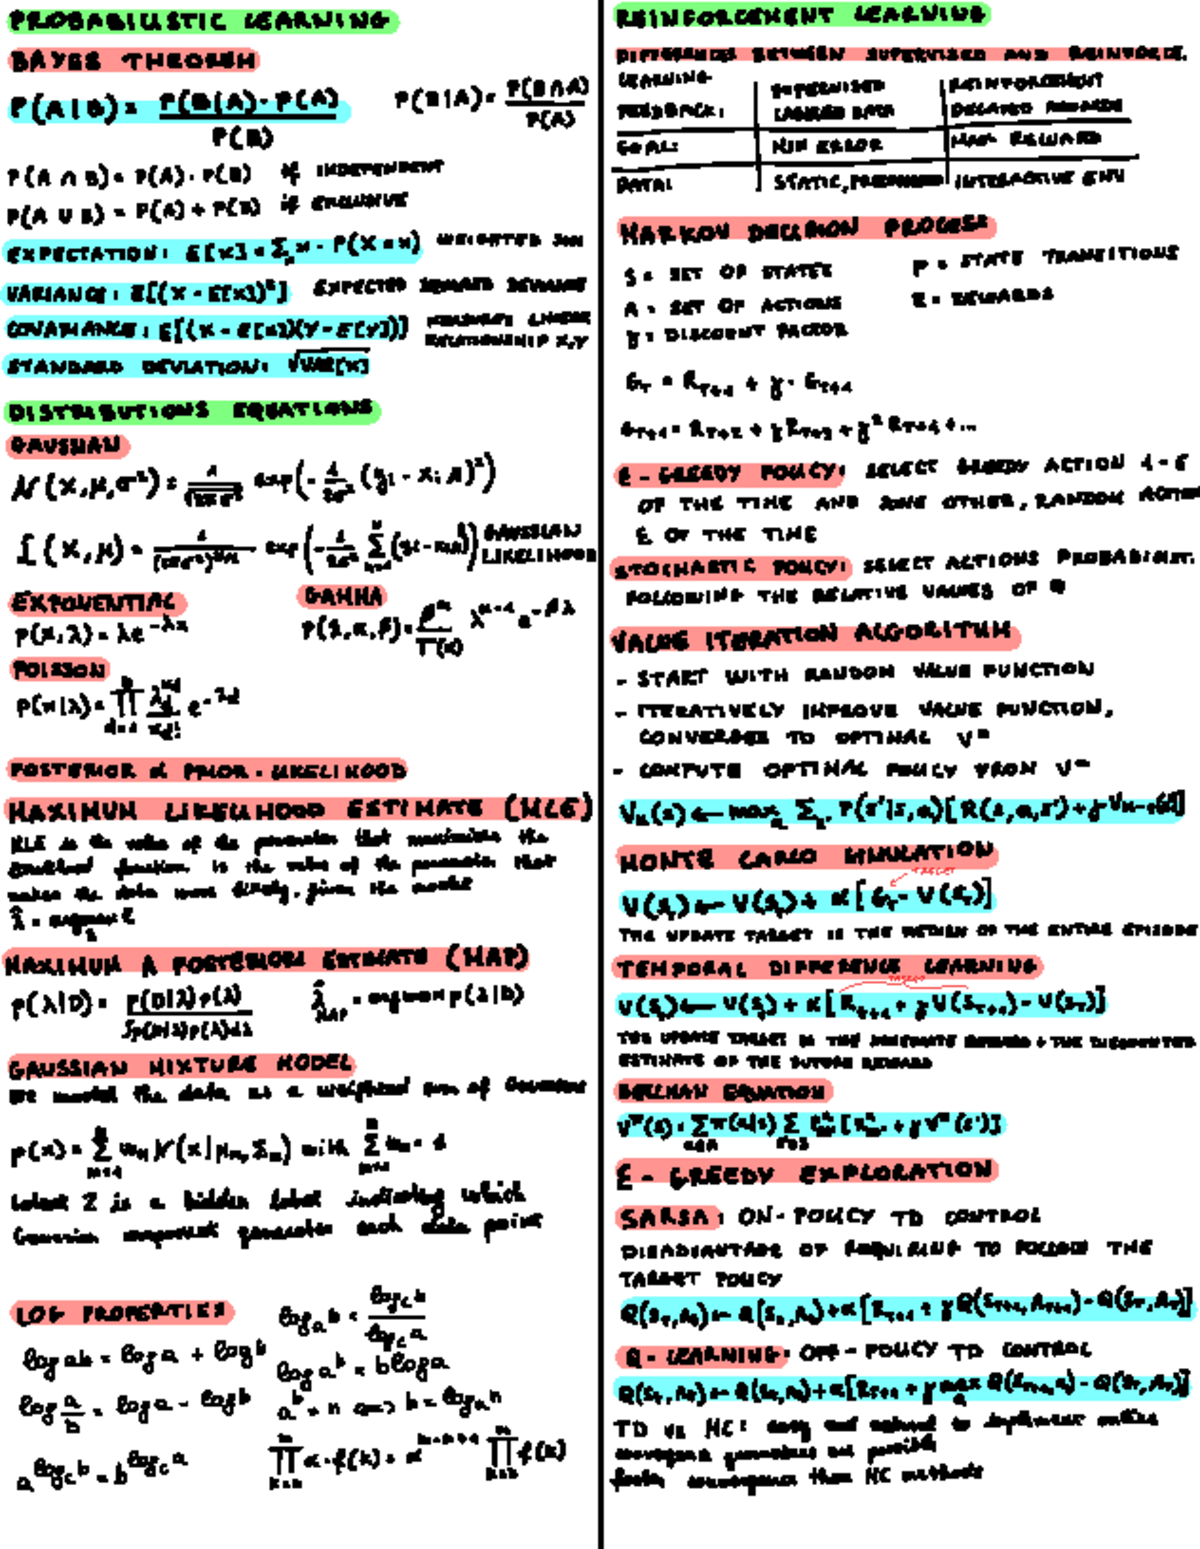 PROBABILISTIC LEARNING
BAYES THEOREM
P(A|B) = P(B|A)·P(A) / P(B)    P(B|A) = P(B∩A) / P(A)
P(A ∩ B) = P(A)·P(B) if INDEPENDENT
P(A ∪ B) = P(A) + P(B) if EXCLUSIVE
EXPECTATION: E[X] = Σₓ x · P(X = x) WEIGHTED
VARIANCE: E[(X - E[X])²] EXPECTED SQUARED DEVIANCE
COVARIANCE: E[(X - E[X])(Y - E[Y])] MEASURES LINEAR
RELATIONSHIP X,Y
STANDARD DEVIATION: √VAR[X]
DISTRIBUTIONS EQUATIONS
GAUSSIAN
N(x,μ,σ²) = 1/√(2πσ²) exp(-1/2σ² (
GAUSSIAN
LIKELIHOOD
EXPONENTIAL
P(x,λ) = λe^(-λx)
GAMMA
POISSON
P(x|λ) = ∏
POSTERIOR ∝ PRIOR · LIKELIHOOD
MAXIMUM LIKELIHOOD ESTIMATE (MLE)
MLE is the value of the parameter that maximizes the
likelihood function. is the value of the parameter that
makes the data more likely, given the model
λ̂ = argmax ℒ
λ
MAXIMUM A POSTERIORI ESTIMATE (MAP)
p(λ|D) = p(D|λ)p(λ) / ∫p(D|λ)p(λ)dλ    λ̂_MAP = argmax p(λ|D)
GAUSSIAN MIXTURE MODEL
We model the data as a weighted sum of Gaussians
Latent Z is a hidden label indicating which
Gaussian component generates each data point
LOG PROPERTIES
log_a b = log_c b / log_c a
log ab = log a + log b
log a^b = b log a
log a/b = log a - log b
a^b = n ⟺ b = log_a n
a^(log_c b) = b^(log_c a)
REINFORCEMENT LEARNING
DIFFERENCES BETWEEN SUPERVISED AND REINFORCE.
LEARNING SUPERVISED REINFORCEMENT
FEEDBACK: LABELED DATA DELAYED REWARDS
GOAL: MIN ERROR MAX REWARD
DATA: STATIC, INTERACTIVE ENV
MARKOV DECISION PROCESS
S = SET OF STATES P = STATE TRANSITIONS
A = SET OF ACTIONS R = REWARDS
γ = DISCOUNT FACTOR
G_T = R_T+1 + γ · G_T+1
G_T+1 = R_T+2 + γR_T+3 + γ²R_T+4 + ...
ε - GREEDY POLICY: SELECT GREEDY ACTION 1 - ε
OF THE TIME AND SOME OTHER, RANDOM ACTION
ε OF THE TIME
STOCHASTIC POLICY: SELECT ACTIONS PROBABILIST.
FOLLOWING THE RELATIVE VALUES OF Q
VALUE ITERATION ALGORITHM
- START WITH RANDOM VALUE FUNCTION
- ITERATIVELY IMPROVE VALUE FUNCTION,
CONVERGES TO OPTIMAL V*
- COMPUTE OPTIMAL POLICY FROM V*
MONTE CARLO SIMULATION
TARGET
V(S_t) ← V(S_t) + α[G_T - V(S_t)]
THE UPDATE TARGET IS THE RETURN OF THE ENTIRE EPISODE
TEMPORAL DIFFERENCE LEARNING
TARGET
V(S_t) ← V(S_t) + α[R_t+1 + γV(S_T+1) - V(S_T)]
THE UPDATE TARGET IS THE IMMEDIATE REWARD + THE DISCOUNTED
ESTIMATE OF THE FUTURE REWARD
BELLMAN EQUATION
ε - GREEDY EXPLORATION
SARSA: ON-POLICY TD CONTROL
DISADVANTAGE OF REQUIRING TO FOLLOW THE
TARGET POLICY
Q(S_T,A_T) ← Q(S_T,A_T) + α[R_T+1 + γQ(S_T+1,A_T+1) - Q(S_T,A_T)]
Q - LEARNING: OFF - POLICY TD CONTROL
Q(S_T,A_T) ← Q(S_T,A_T) + α[R_T+1 + γ max_a Q(S_T+1,a) - Q(S_T,A_T)]
TD vs MC: easy and natural to implement online
convergence guarantees are possible
faster convergence than MC methods